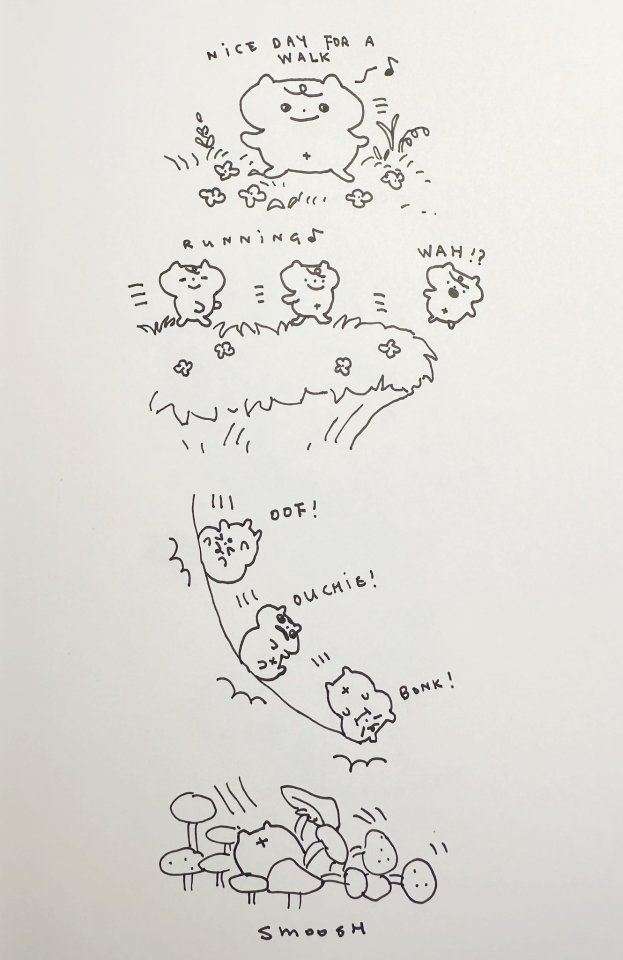 NICE DAY FOR A
WALK
RUNNING
WAH!?
OOF!
OUCHIE!
BONK!
SMOOSH